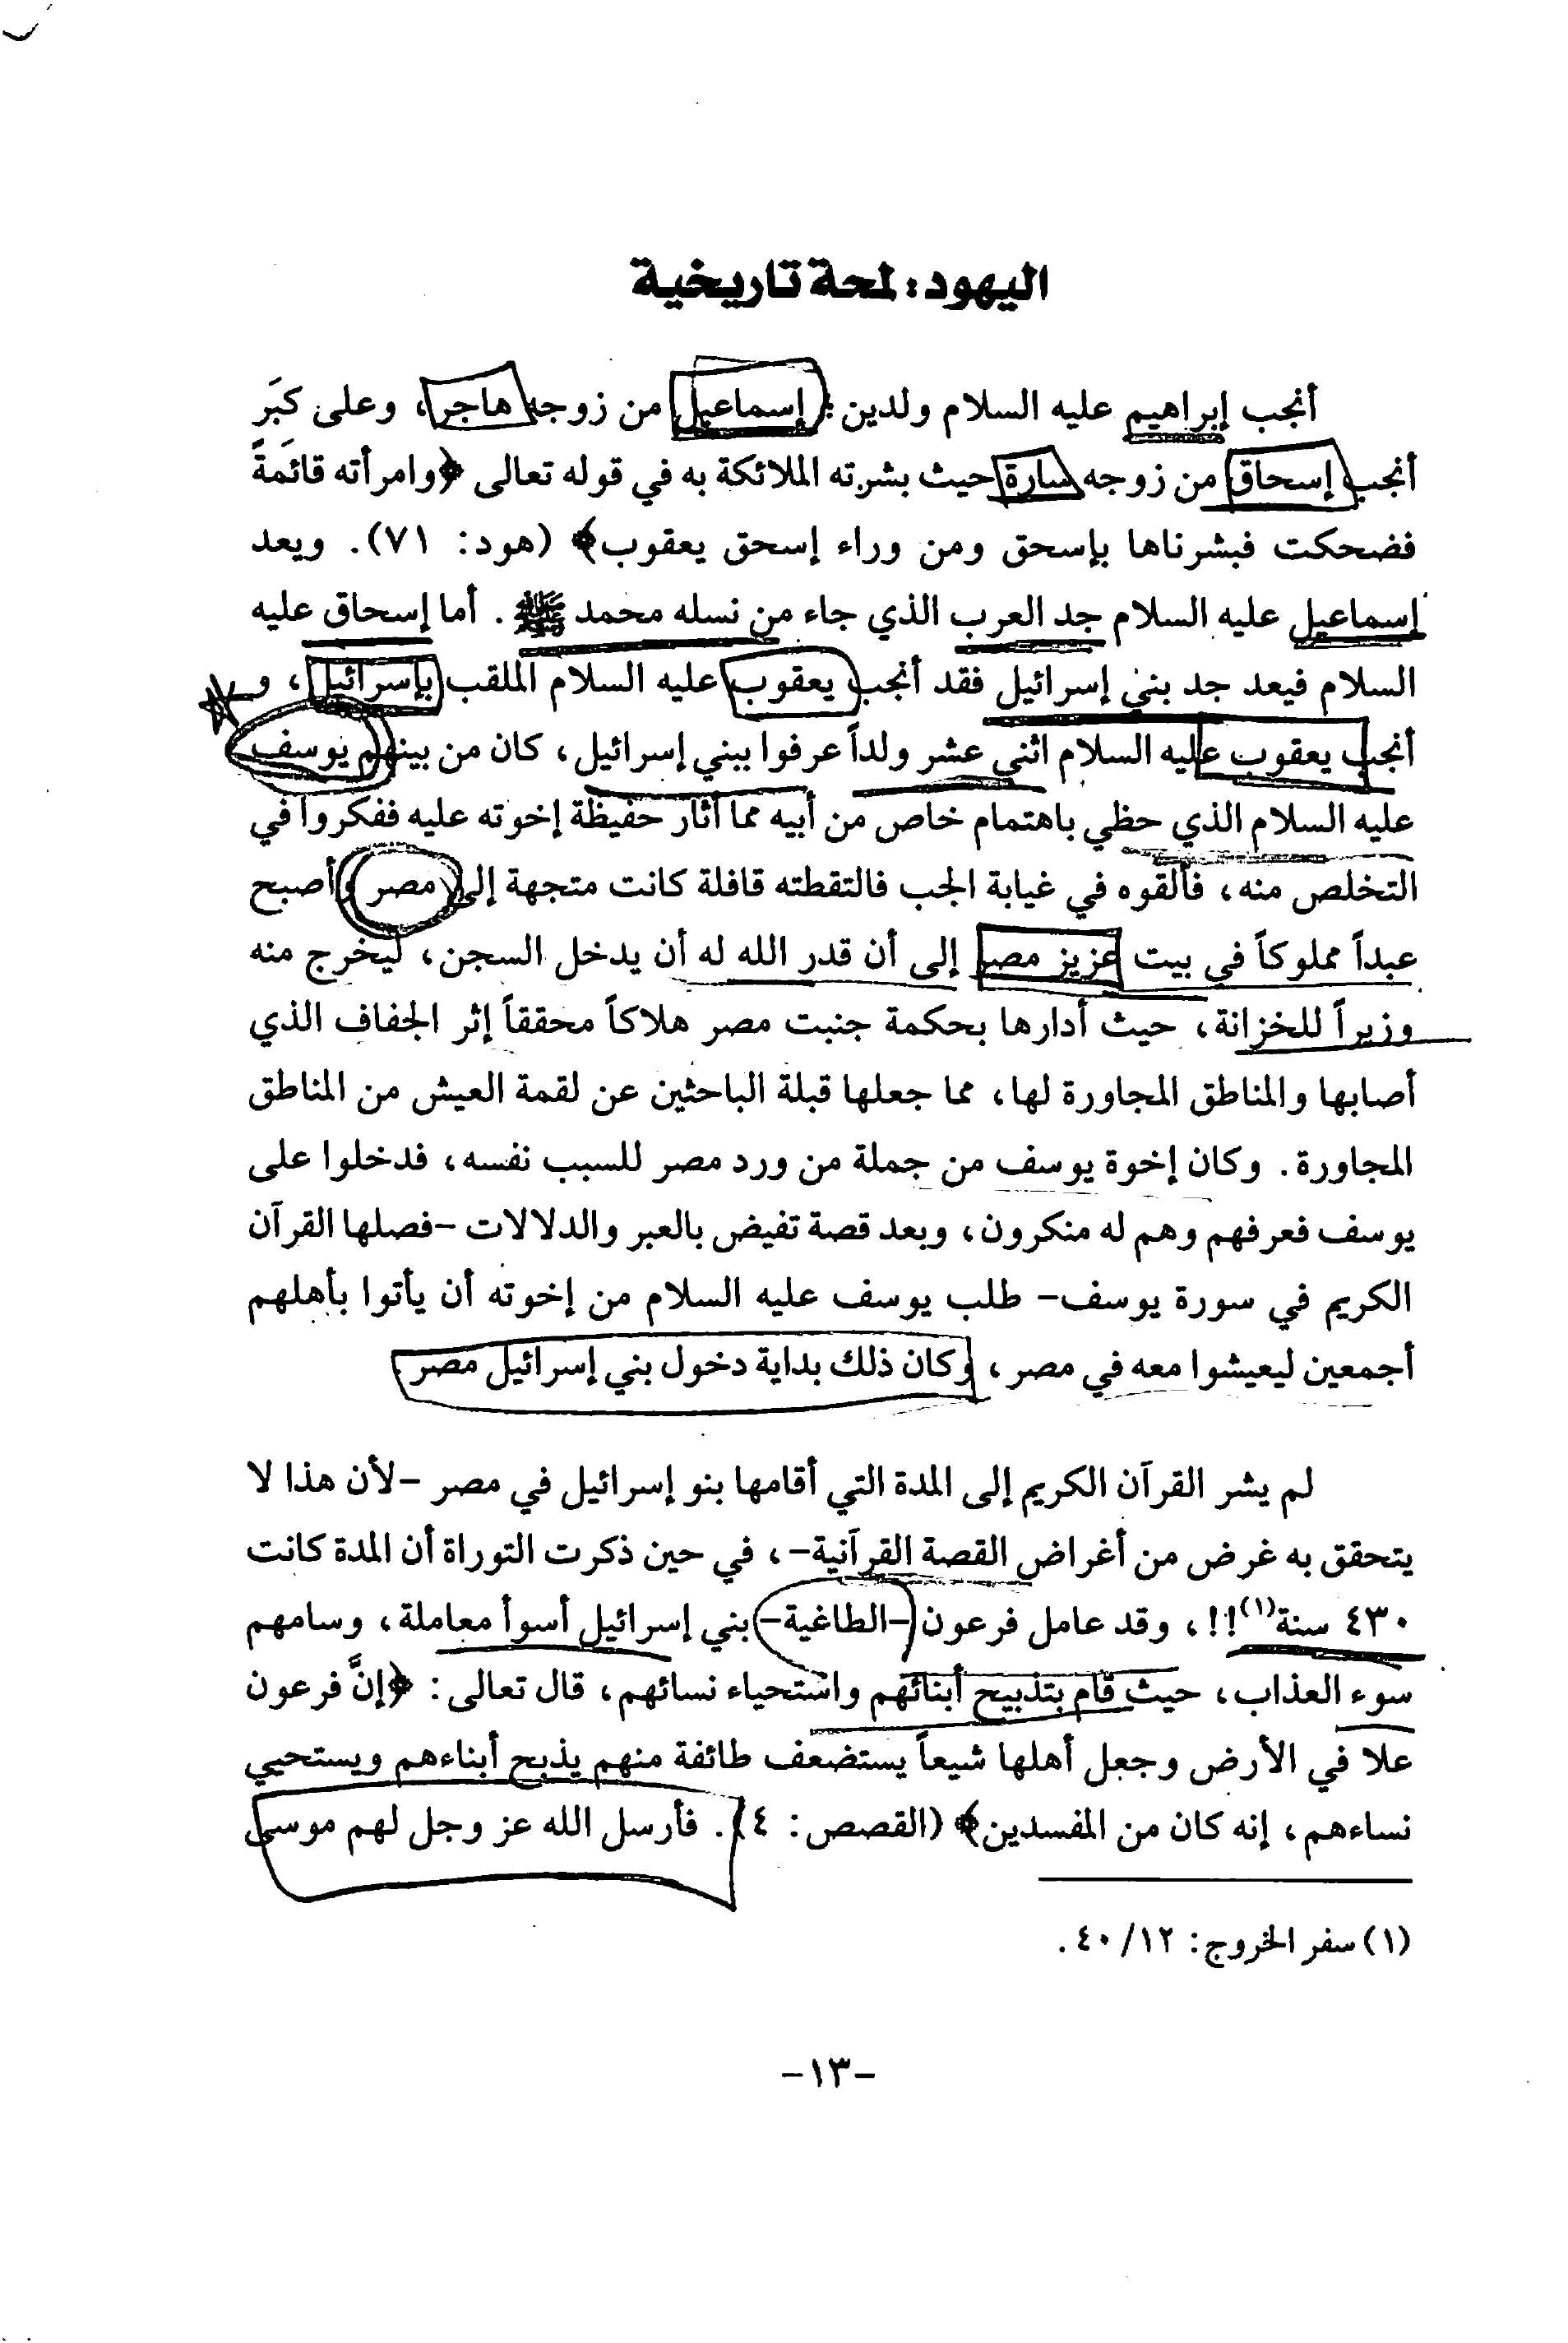 اليهود: لمحة تاريخية
أنجب إبراهيم عليه السلام ولدين: إسماعيل من زوجه هاجر، وعلى كبَر
أنجب إسحاق من زوجه سارة حيث بشرته الملائكة به في قوله تعالى ﴿وامرأته قائمَةً
فضحكت فبشرناها بإسحق ومن وراء إسحق يعقوب﴾ (هود: ٧١). ويعد
إسماعيل عليه السلام جد العرب الذي جاء من نسله محمد ﷺ. أما إسحاق عليه
السلام فيعد جد بني إسرائيل فقد أنجب يعقوب عليه السلام الملقب بإسرائيل، و
أنجب يعقوب عليه السلام اثني عشر ولداً عرفوا ببني إسرائيل، كان من بينهم يوسف
عليه السلام الذي حظي باهتمام خاص من أبيه مما أثار حفيظة إخوته عليه ففكروا في
التخلص منه، فألقوه في غيابة الجب فالتقطته قافلة كانت متجهة إلى مصر وأصبح
عبداً مملوكاً في بيت عزيز مصر إلى أن قدر الله له أن يدخل السجن، ليخرج منه
وزيراً للخزانة، حيث أدارها بحكمة جنبت مصر هلاكاً محققاً إثر الجفاف الذي
أصابها والمناطق المجاورة لها، مما جعلها قبلة الباحثين عن لقمة العيش من المناطق
المجاورة. وكان إخوة يوسف من جملة من ورد مصر للسبب نفسه، فدخلوا على
يوسف فعرفهم وهم له منكرون، وبعد قصة تفيض بالعبر والدلالات -فصلها القرآن
الكريم في سورة يوسف- طلب يوسف عليه السلام من إخوته أن يأتوا بأهلهم
أجمعين ليعيشوا معه في مصر، وكان ذلك بداية دخول بني إسرائيل مصر
لم يشر القرآن الكريم إلى المدة التي أقامها بنو إسرائيل في مصر -لأن هذا لا
يتحقق به غرض من أغراض القصة القرآنية-، في حين ذكرت التوراة أن المدة كانت
٤٣٠ سنة(١)!!، وقد عامل فرعون -الطاغية- بني إسرائيل أسوأ معاملة، وسامهم
سوء العذاب، حيث قام بتذبيح أبنائهم واستحياء نسائهم، قال تعالى: ﴿إنَّ فرعون
علا في الأرض وجعل أهلها شيعاً يستضعف طائفة منهم يذبح أبناءهم ويستحيي
نساءهم، إنه كان من المفسدين﴾ (القصص: ٤). فأرسل الله عز وجل لهم موسى
(١) سفر الخروج: ٤٠/١٢.
-١٣-